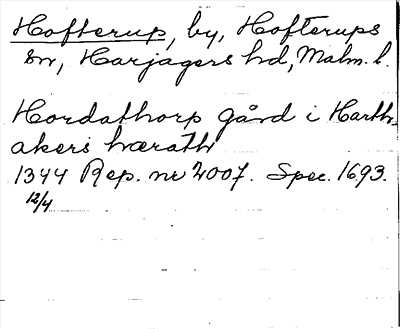 Hofterup, by, Hofterups
sn, Harjagers hd, Malm. l.
Hordathorp gård i Harth-
akers hærath
1344 Rep. nr 2007. Spec. 1693.
12/4